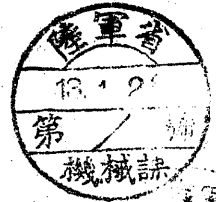 陸軍省
13.1.2
第 / 號
機械課